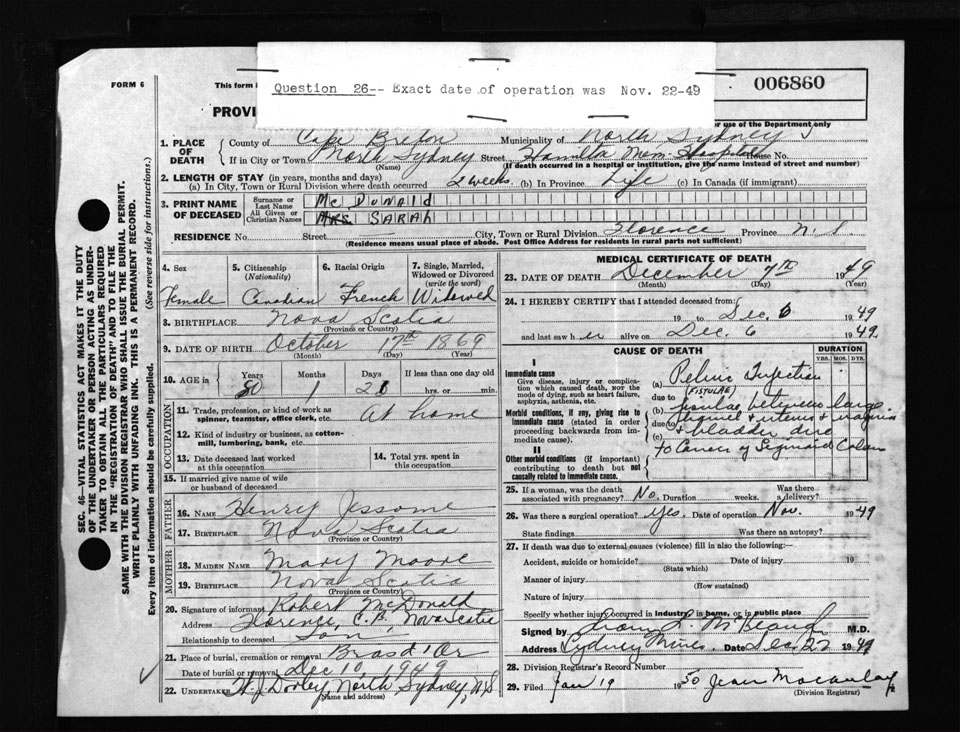 FORM 6
This form
Question 26-- Exact date of operation was Nov. 22-49
006860
PROVI
or use of the Department only
SEC. 46—VITAL STATISTICS ACT MAKES IT THE DUTY
OF THE UNDERTAKER OR PERSON ACTING AS UNDER-
TAKER TO OBTAIN ALL THE PARTICULARS REQUIRED
IN THE "REGISTRATION OF DEATH" AND TO FILE THE
SAME WITH THE DIVISION REGISTRAR WHO SHALL ISSUE THE BURIAL PERMIT.
WRITE PLAINLY WITH UNFADING INK. THIS IS A PERMANENT RECORD.
Every item of information should be carefully supplied. (See reverse side for instructions.)
1. PLACE OF DEATH
County of Cape Breton Municipality of North Sydney
If in City or Town North Sydney Street Hamilton Mem. Hospital House No.
(Name) (If death occurred in a hospital or institution, give the name instead of street and number)
2. LENGTH OF STAY (in years, months and days)
(a) In City, Town or Rural Division where death occurred 2 weeks (b) In Province Life (c) In Canada (if immigrant)
3. PRINT NAME OF DECEASED
Surname or Last Name McDonald
All Given or Christian Names Mrs. SARAH
RESIDENCE No. Street City, Town or Rural Division Florence Province N. S.
(Residence means usual place of abode. Post Office Address for residents in rural parts not sufficient)
4. Sex Female
5. Citizenship (Nationality) Canadian
6. Racial Origin French
7. Single, Married, Widowed or Divorced (write the word) Widowed
8. BIRTHPLACE Nova Scotia
(Province or Country)
9. DATE OF BIRTH October 17th 1869
(Month) (Day) (Year)
10. AGE in Years 80 Months 1 Days 21 If less than one day old hrs. or min.
OCCUPATION
11. Trade, profession, or kind of work as spinner, teamster, office clerk, etc. At home
12. Kind of industry or business, as cotton-mill, lumbering, bank, etc.
13. Date deceased last worked at this occupation
14. Total yrs. spent in this occupation
15. If married give name of wife or husband of deceased
FATHER
16. NAME Henry Jessome
17. BIRTHPLACE Nova Scotia
(Province or Country)
MOTHER
18. MAIDEN NAME Mary Moore
19. BIRTHPLACE Nova Scotia
(Province or Country)
20. Signature of informant Robert McDonald
Address Florence, C.B. Nova Scotia
Relationship to deceased Son
21. Place of burial, cremation or removal Bras d'Or
Date of burial or removal Dec 10, 1949
22. UNDERTAKER W.J. Dooley, North Sydney, N.S
(Name and address)
MEDICAL CERTIFICATE OF DEATH
23. DATE OF DEATH December 7th 1949
(Month) (Day) (Year)
24. I HEREBY CERTIFY that I attended deceased from:
19 to Dec. 6 1949
and last saw her alive on Dec. 6 1949
CAUSE OF DEATH
DURATION
YRS. MOS. DYS.
I
Immediate cause
Give disease, injury or complication which caused death, NOT the mode of dying, such as heart failure, asphyxia, asthenia, etc.
(a) Pelvic Infection
due to (FISTULAE)
Morbid conditions, if any, giving rise to immediate cause (stated in order proceeding backwards from immediate cause).
(b) fistulae between large
due to bowel & uterus & vagina
(c) & bladder due
II
to Cancer of Sigmoid Colon
Other morbid conditions (if important) contributing to death but not causally related to immediate cause.
25. If a woman, was the death associated with pregnancy? No. Duration weeks. Was there a delivery?
26. Was there a surgical operation? Yes. Date of operation Nov. 1949
State findings Was there an autopsy?
27. If death was due to external causes (violence) fill in also the following:—
Accident, suicide or homicide? Date of injury 19
(State which)
Manner of injury
(How sustained)
Nature of injury
Specify whether injury occurred in industry, in home, or in public place
Signed by L. M.D.
Address Sydney Mines Date Dec 22 1949
28. Division Registrar's Record Number
29. Filed Jan 19 1950 Jean Macaulay
(Division Registrar)